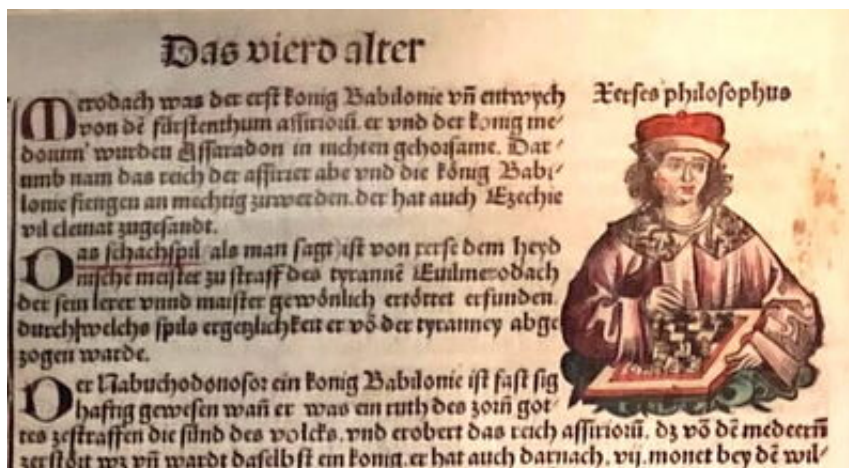 Das vierd alter
Merodach was der erst konig Babilonie vñ entwych
von dē fürstenthum assirioꝝ. er vnd der konig me⸗
doꝝ wurden Assaradon in nichten gehorsame. Dar⸗
umb nam das reich der assirier abe vnd die könig Babi⸗
lonie fiengen an mechtig zuwerden. der hat auch Ezechie
vil cleinat zugesandt.
Das schachspil (als man sagt) ist von xerse dem heyd
nische meister zu straff des tyrannē Euilmerodach
der sein lerer vnnd maister gewönlich ertöttet erfunden.
durch welchs spils ergetzlichkeit er võ der tyranney abge
zogen warde.
Der Nabuchodonosor ein konig Babilonie ist fast sig
hafftig gewesen wañ er was ein ruth des zorñ got⸗
tes zestraffen die sünd des volcks. vnd erobert das reich assirioꝝ. dz võ dē medeern
zerstört wz vñ wardt daselbst ein konig. er hat auch darnach. vij. monet bey dē wil⸗
Xerses philosophus